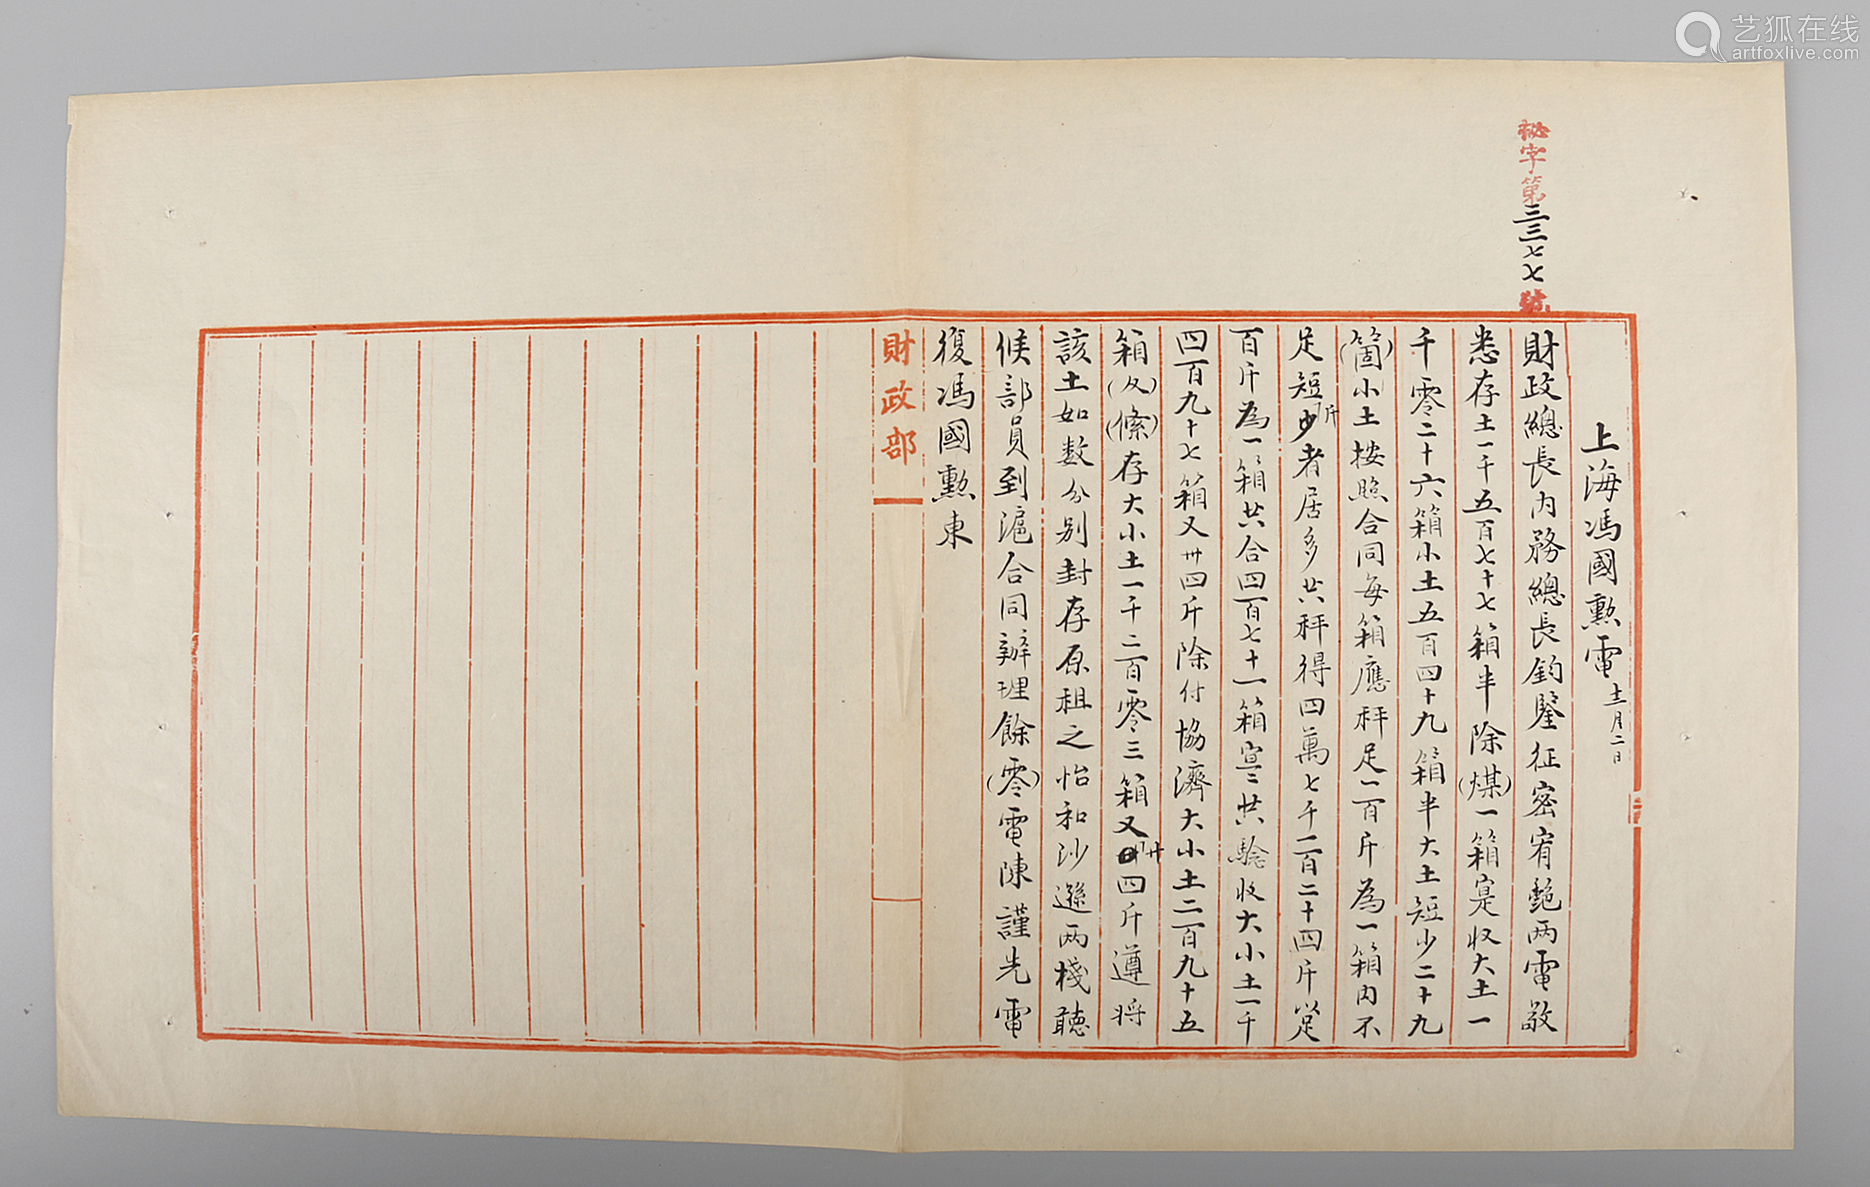 艺狐在线
artfoxlive.com
秘字第三三七七號
上海馮國勳電十二月二日
財政總長內務總長鈞鑒征密宥艷两電敬
悉存土一千五百七十七箱半除(煤)一箱寔收大土一
千零二十六箱小土五百四十九箱半大土短少二十九
(箇)小土按照合同每箱應秤足一百斤為一箱內不
足短少斤者居多共秤得四萬七千一百二十四斤以足
百斤為一箱共合四百七十一箱寔寔共驗收大小土一千
四百九十七箱又卅四斤除付協濟大小土二百九十五
箱(及)(絛)存大小土一千二百零三箱又廿四斤遵将
該土如数分别封存原租之怡和沙遜两棧聽
候部員到滬合同辦理餘(零)電陳謹先電
復馮國勳東
財政部